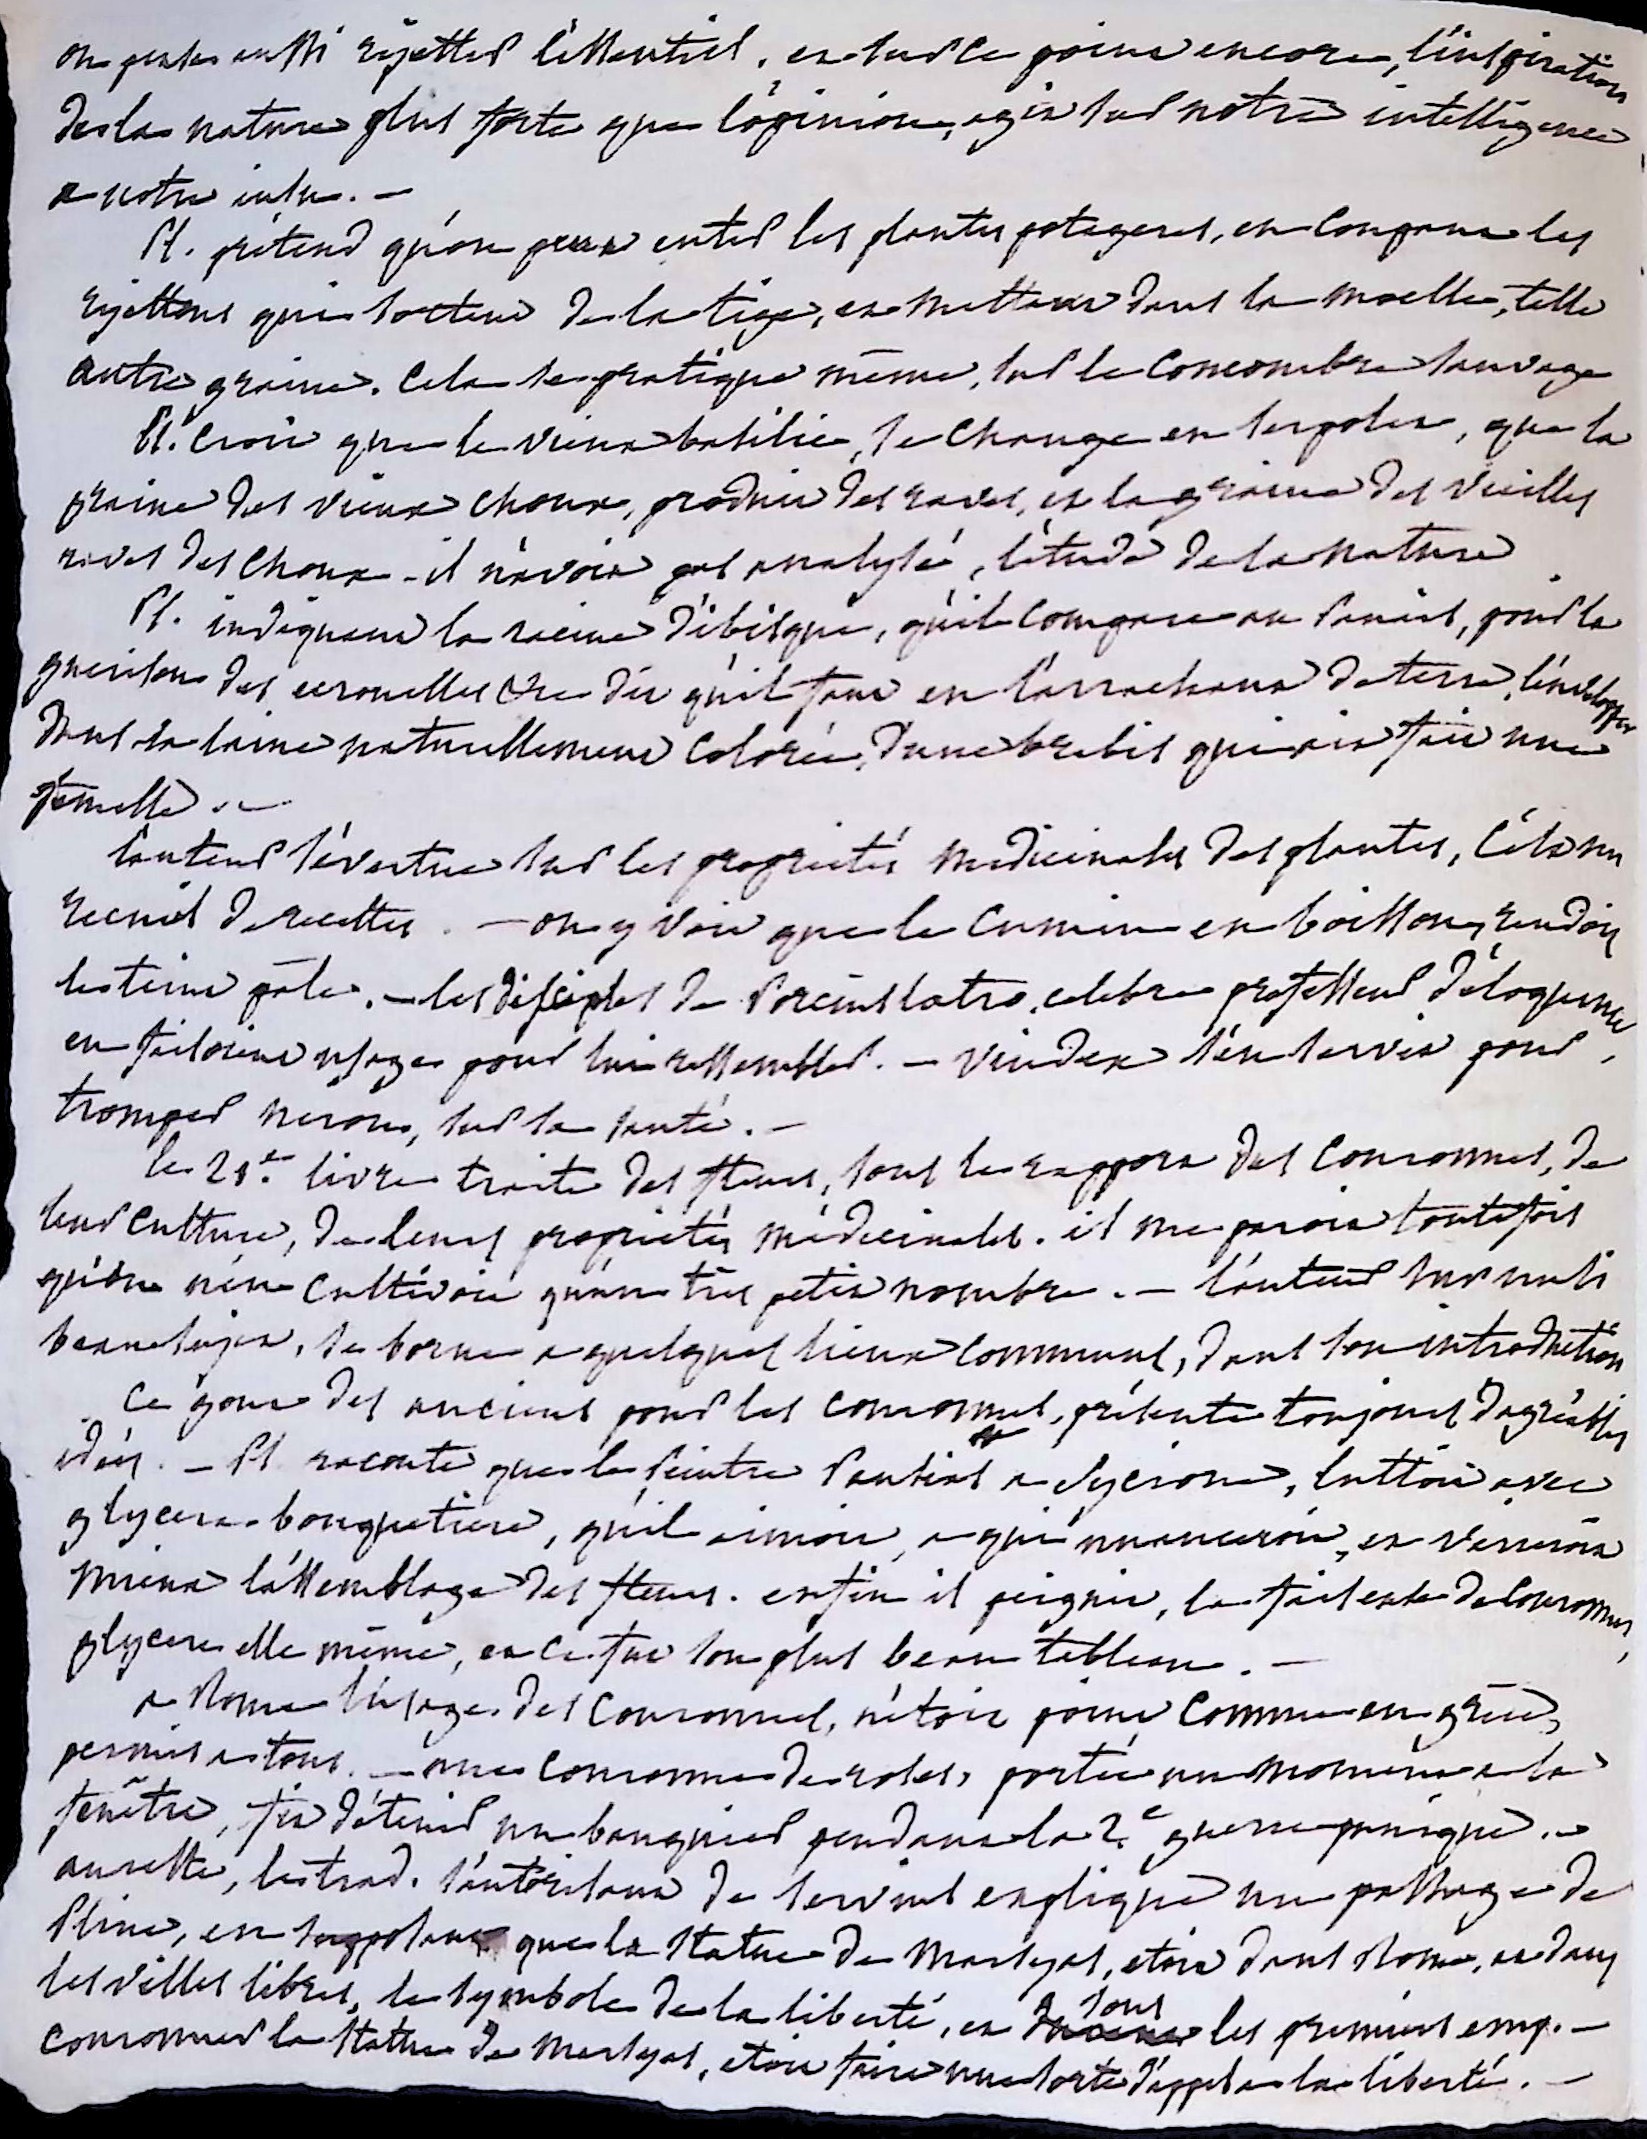 on peut aussi rejetter l'essentiel. et sur ce point encore, l'inspiration
de la nature plus forte que l'opinion, agit sur notre intelligence
a notre insu. —
Pl. prétend qu'on peut enter les plantes potageres, en coupant les
rejettons qui sortent de la tige, et mettant dans la moelle, telle
autre graine. cela se pratique même, sur le concombre sauvage
Pl. croit que le vieux basilic, se change en serpolet, que la
graine des vieux choux, produit des raves, et la graine des vieilles
raves des choux - il n'avoit pas analysé, l'étude de la nature
Pl. indiquant la racine d'ébisque, qu'il compare au panais, pour la
guerison des ecrouelles &c dit qu'il faut en l'arrachant de terre, l'enveloper
dans la laine naturellement colorée, d'une brebis qui ait fait une
femelle. —
l'auteur s'évertue sur les proprietés medicinales des plantes, c'est un
recueil de recettes. — on y voit que le cumin en boisson, rendoit
le teint pâle. — les disciples de Porcius latro, celebre professeur d'éloquence,
en faisoient usage pour lui ressembler. — Vindex s'en servit pour
tromper neron, sur sa santé. —
le 21e. livre traite des fleurs, sous le rapport des couronnes, de
leur culture, de leurs proprietés médicinales. il me paroit toutefois
qu'on n'en cultivoit qu'un très petit nombre. — l'auteur sur un si
beau sujet, se borne a quelques lieux communs, dans son introduction
Ce gout des anciens pour les couronnes, présente toujours d'agréables
idées. — Pl. raconte que le peintre Pausias a sycione, luttoit avec
glycere bouquetiere, qu'il aimoit, a qui nuanceroit, et varieroit
mieux l'assemblage des fleurs. enfin il peignit, la faiseuse de couronnes,
glycere elle même, et ce fut son plus beau tableau. —
a Rome l'usage des couronnes, n'étoit point comme en grèce,
permis a tous. — une couronne de roses, portée un moment a la
fenêtre, fit détenir un banquier pendant la 2e. guerre punique. —
au reste, le trad. s'autorisant de servius explique un passage de
Pline, en supposant que la statue de Marsyas, etoit dans Rome, et dans
les villes libres, le symbole de la liberté, et sous les premiers emp. —
couronner la statue de Marsyas, etoit faire une sorte d'appel a la liberté. —